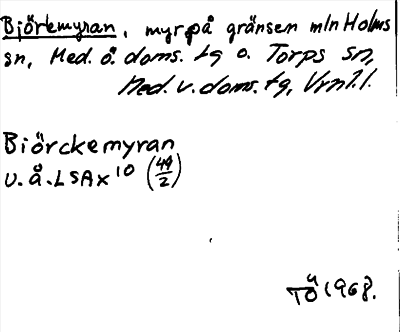 Björkmyran, myr på gränsen mln Holms
sn, Med. ö. doms. tg o. Torps sn,
Med. v. doms. tg, Vrnl.l.
Biörckemyran
u. å. LSA x 10 (44/2)
TÖ 1968.